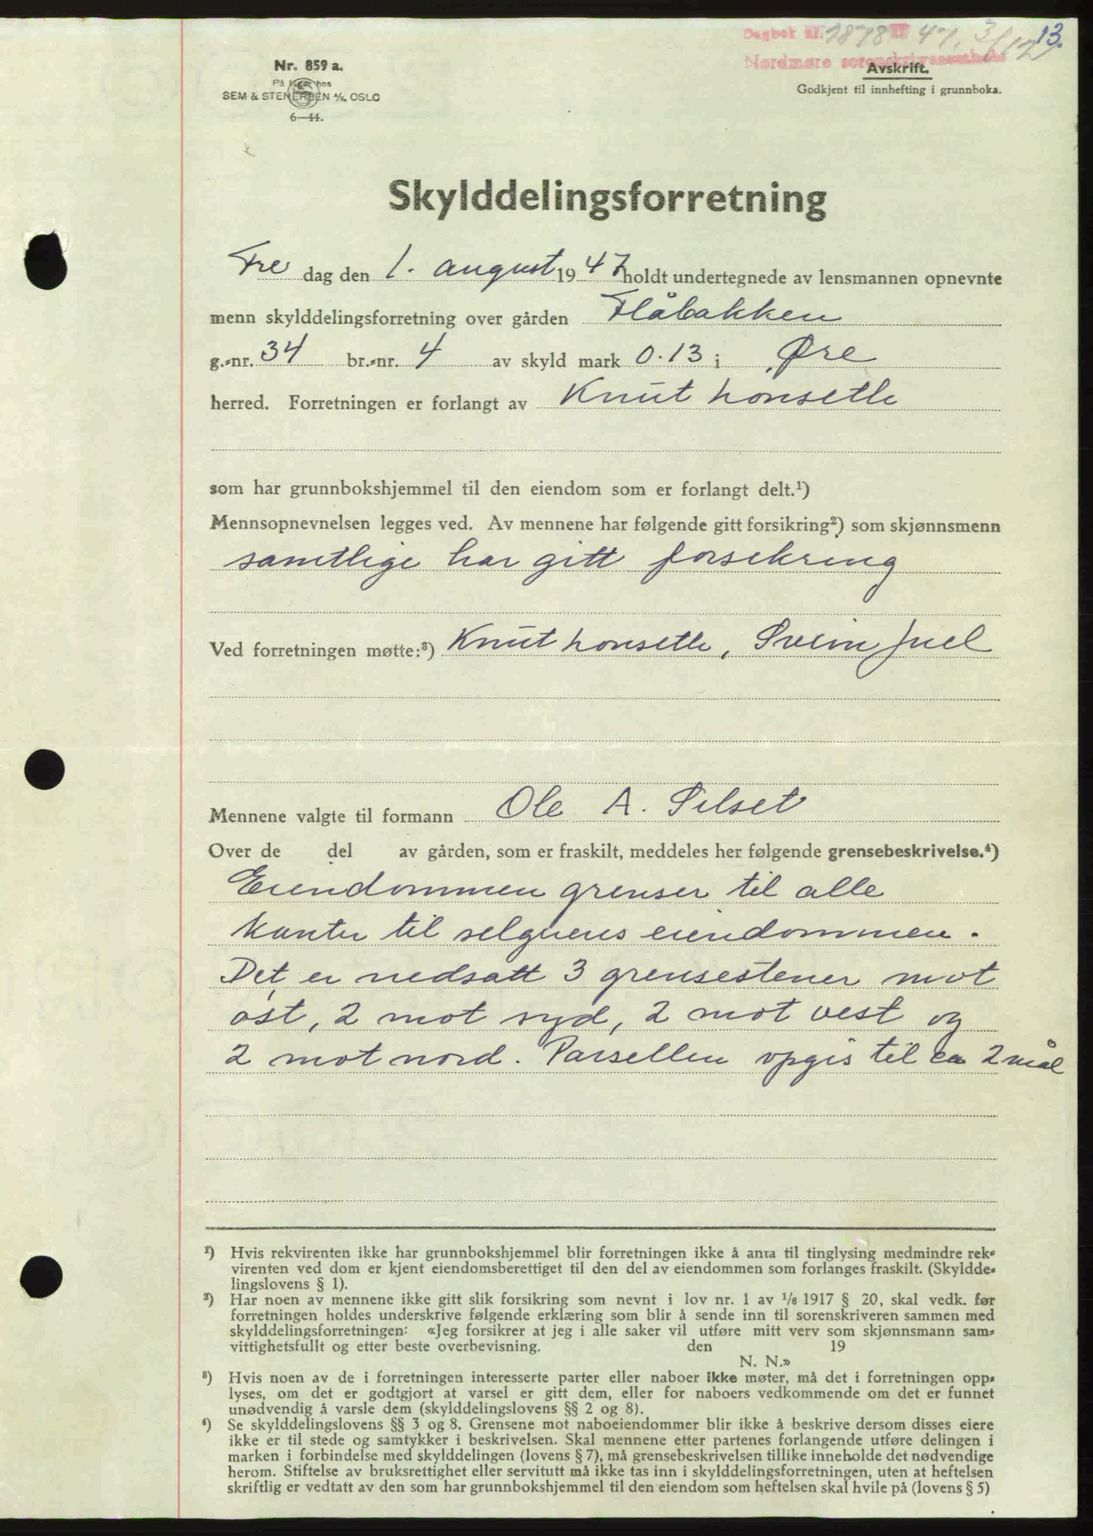 Dagbok nr. 2878 19 47, 3/12 13.
Nordmøre sorenskriverembete
Nr. 859 a.
På lager hos
SEM & STENERSEN A/S, OSLO
6—44.
Avskrift.
Godkjent til innhefting i grunnboka.
Skylddelingsforretning
Fre dag den 1. august 1947 holdt undertegnede av lensmannen opnevnte
menn skylddelingsforretning over gården Flåbakken
g.-nr. 34 br.-nr. 4 av skyld mark 0.13 i Øre
herred. Forretningen er forlangt av Knut Lonsetle
som har grunnbokshjemmel til den eiendom som er forlangt delt.¹)
Mennsopnevnelsen legges ved. Av mennene har følgende gitt forsikring²) som skjønnsmenn
samtlige har gitt forsekring
Ved forretningen møtte:³) Knut Lonsetle, Svein Juel
Mennene valgte til formann Ole A. Silset
Over de del av gården, som er fraskilt, meddeles her følgende grensebeskrivelse.⁴)
Eiendommen grenser til alle
kanter til selgerens eiendommen.
Det er nedsatt 3 grensestener mot
øst, 2 mot syd, 2 mot vest og
2 mot nord. Parsellen opgis til ca 2 mål
¹) Hvis rekvirenten ikke har grunnbokshjemmel blir forretningen ikke å anta til tinglysing medmindre rek-
virenten ved dom er kjent eiendomsberettiget til den del av eiendommen som forlanges fraskilt. (Skyldde-
lingslovens § 1).
²) Har noen av mennene ikke gitt slik forsikring som nevnt i lov nr. 1 av 1/6 1917 § 20, skal vedk. før
forretningen holdes underskrive følgende erklæring som blir å sende inn til sorenskriveren sammen med
skylddelingsforretningen: «Jeg forsikrer at jeg i alle saker vil utføre mitt verv som skjønnsmann sam-
vittighetsfullt og etter beste overbevisning. den 19
N. N.»
³) Hvis noen av de i forretningen interesserte parter eller naboer ikke møter, må det i forretningen opp-
lyses, om det er godtgjort at varsel er gitt dem, eller for naboers vedkommende om det er funnet
unødvendig å varsle dem (skylddelingslovens §§ 2 og 8).
⁴) Se skylddelingslovens §§ 3 og 8. Grensene mot naboeiendommer blir ikke å beskrive dersom disses eiere
ikke er til stede og samtykker i beskrivelsen. Skal mennene etter partenes forlangende utføre delingen i
marken i forbindelse med skylddelingen (lovens § 7), må grensebeskrivelsen tillike inneholde det nødvendige
herom. Stiftelse av bruksrettighet eller servitutt må ikke tas inn i skylddelingsforretningen, uten at heftelsen
skriftlig er vedtatt av den som har grunnbokshjemmel til den eiendom som heftelsen skal hvile på (lovens § 5)